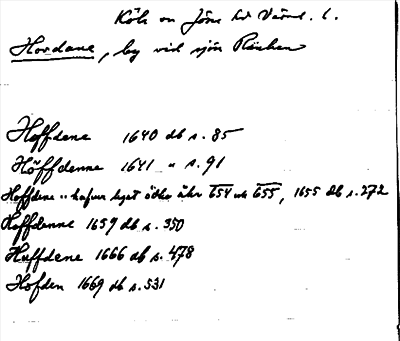 Köla sn Jösse hd Värml. l.
Hordane, by vid sjön
Hoffdene 1640 db s. 85
Höffdenne 1641 " s. 91
Hoffdene " hafver lyat öde åhr 654 och 655, 1655 db s. 272
Hoffdenne 1659 db s. 350
Huffdene 1666 db s. 478
Hofden 1669 db s. 531